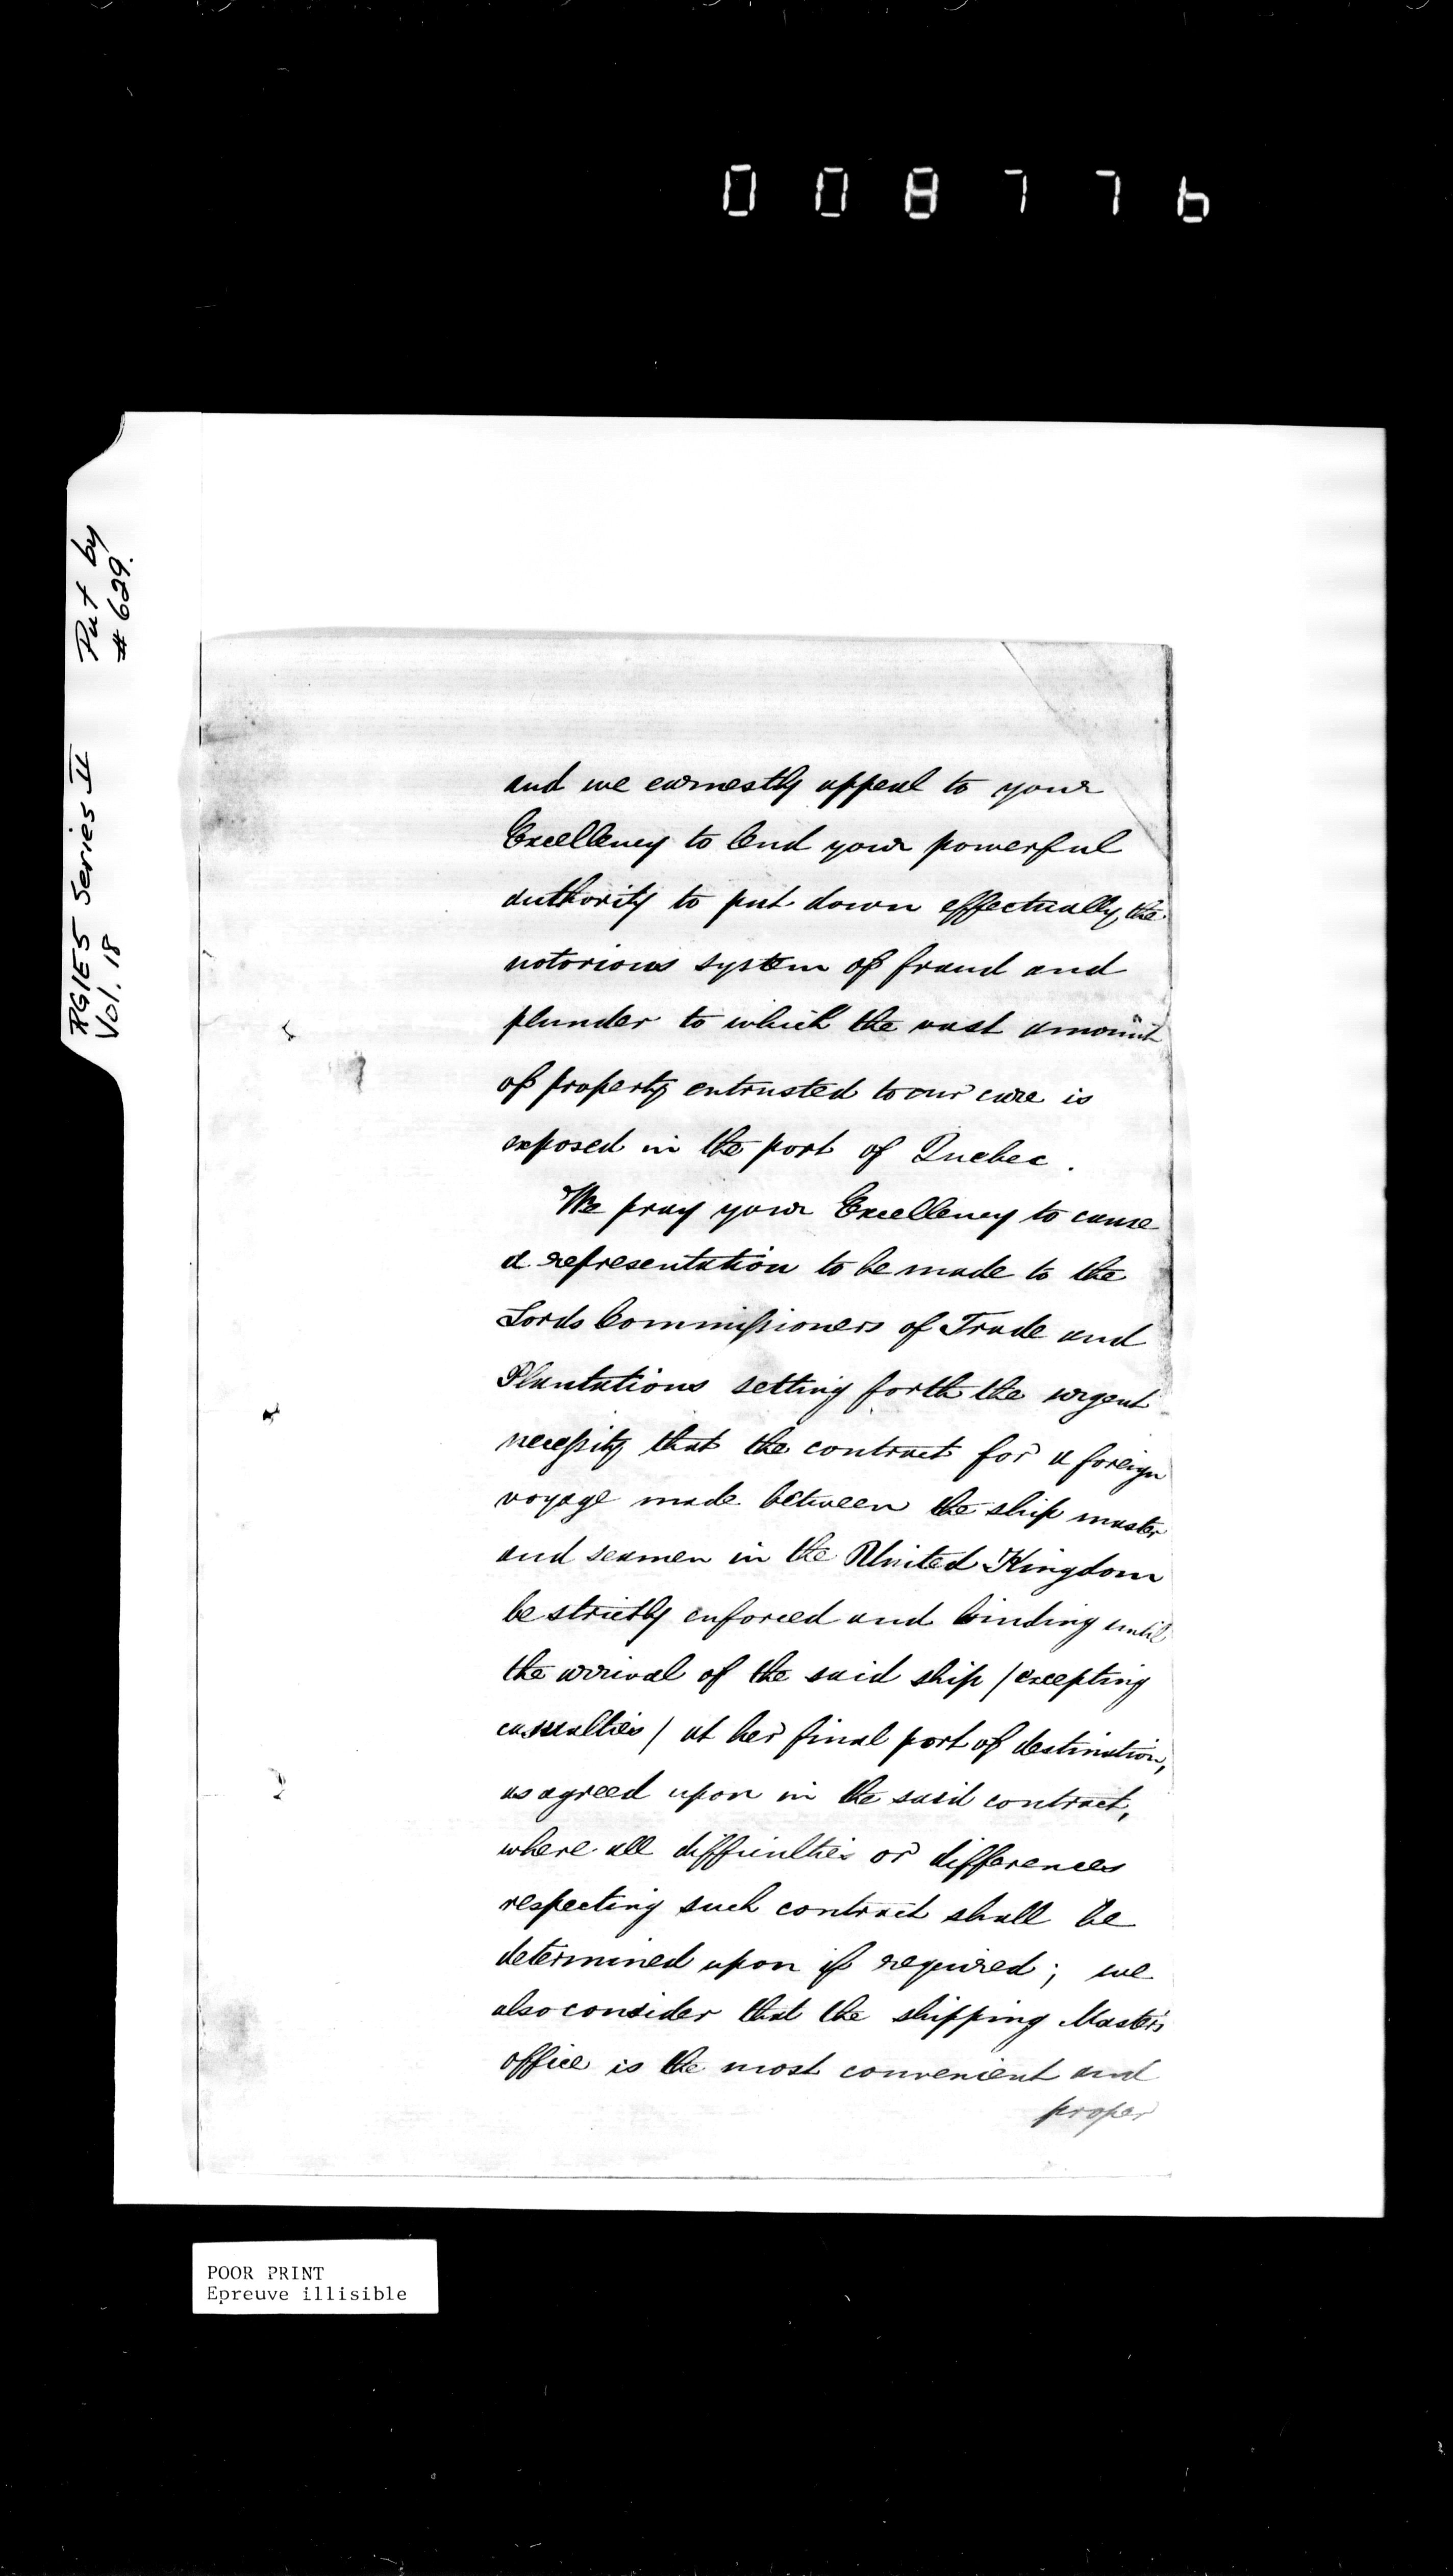 008776
Put by
# 629.
RG1E5 Series II
Vol. 18
and we earnestly appeal to your
Excellency to lend your powerful
authority to put down effectually, the
notorious system of fraud and
plunder to which the vast amount
of property entrusted to our care is
exposed in the port of Quebec.
We pray your Excellency to cause
a representation to be made to the
Lords Commissioners of Trade and
Plantations setting forth the urgent
necessity that the contract for a foreign
voyage made between the ship master
and seamen in the United Kingdom
be strictly enforced and binding until
the arrival of the said ship / excepting
casualties / at her final port of destination,
as agreed upon in the said contract,
where all difficulties or differences
respecting such contract shall be
determined upon if required; we
also consider that the shipping Master's
office is the most convenient and
proper
POOR PRINT
Epreuve illisible